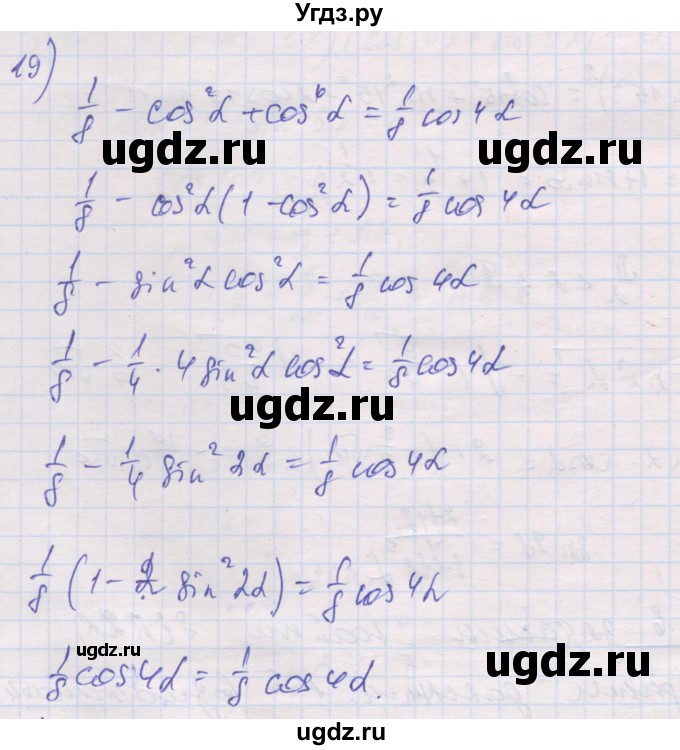 Угдз.ру
19)
1/8 - cos²α + cos⁶α = 1/8 cos 4α
ugdz.ru ugdz.ru
1/8 - cos²α (1 - cos²α) = 1/8 cos 4α
1/8 - sin²α cos²α = 1/8 cos 4α
1/8 - 1/4 · 4 sin²α cos²α = 1/8 cos 4α
ugdz.ru
1/8 - 1/4 sin² 2α = 1/8 cos 4α
1/8 (1 - 2 sin² 2α) = 1/8 cos 4α
ugdz.ru
1/8 cos 4α = 1/8 cos 4α.
ugdz.ru